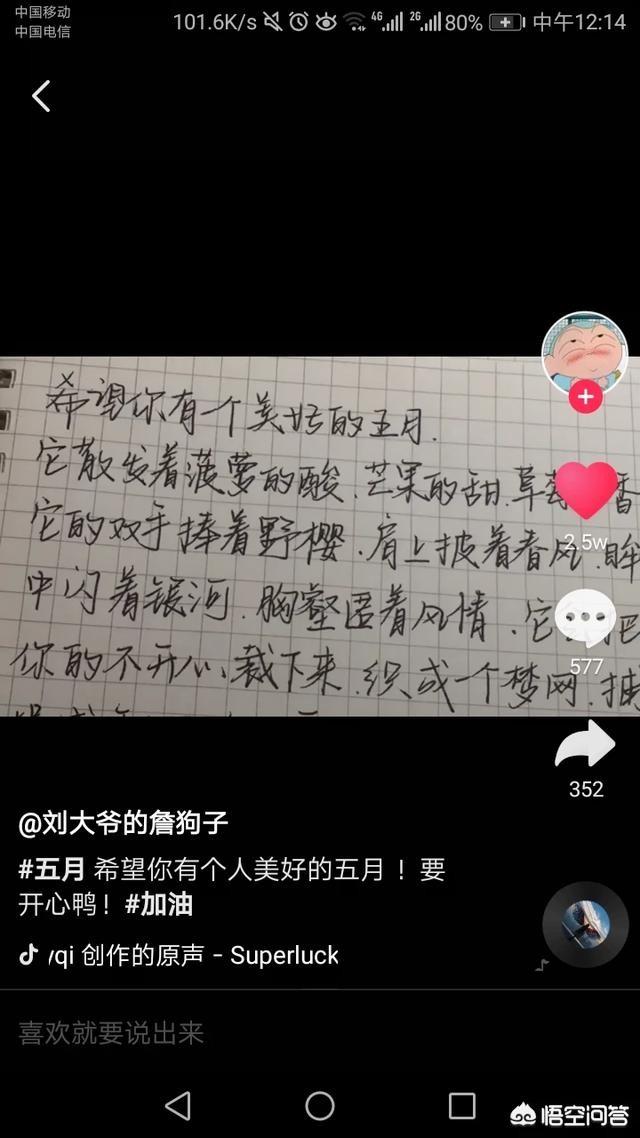 中国移动
中国电信
101.6K/s 4G 2G 80% 中午12:14
希望你有一个美好的五月.
它散发着菠萝的酸.芒果的甜.草莓 香
它的双手捧着野樱.肩上披着春风.眸
中闪着银河.胸壑匿着风情.它 把
你的不开心、裁下来.织成一个梦网.捕
2.5w
577
352
@刘大爷的詹狗子
#五月 希望你有个人美好的五月！要
开心鸭！#加油
yqi 创作的原声 - Superluck
喜欢就要说出来
悟空问答